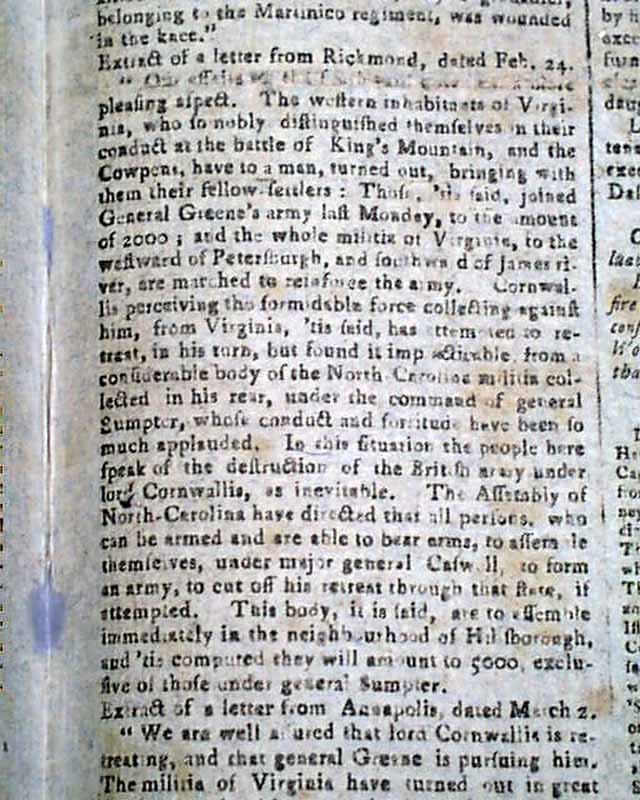 belonging to the Martinico regiment, was wounded
in the knee."
Extract of a letter from Richmond, dated Feb. 24.
" Our affairs
pleasing aspect. The western inhabitants of Virgi-
nia, who so nobly distinguished themselves in their
conduct at the battle of King's Mountain, and the
Cowpens, have to a man, turned out, bringing with
them their fellow-settlers : Those, 'tis said, joined
General Greene's army last Monday, to the amount
of 2000 ; and the whole militia of Virginia, to the
westward of Petersburgh, and southward of James ri-
ver, are marched to reinforce the army. Cornwal-
lis perceiving the formidable force collecting against
him, from Virginia, 'tis said, has attempted to re-
treat, in his turn, but found it impracticable, from a
considerable body of the North Carolina militia col-
lected in his rear, under the command of general
Sumpter, whose conduct and fortitude have been so
much applauded. In this situation the people here
speak of the destruction of the British army under
lord Cornwallis, as inevitable. The Assembly of
North-Carolina have directed that all persons, who
can be armed and are able to bear arms, to assemble
themselves, under major general Caswell, to form
an army, to cut off his retreat through that state, if
attempted. This body, it is said, are to assemble
immediately in the neighbourhood of Hillsborough,
and 'tis computed they will amount to 5000, exclu-
sive of those under general Sumpter.
Extract of a letter from Annapolis, dated March 2.
" We are well assured that lord Cornwallis is re-
treating, and that general Greene is pursuing him.
The militia of Virginia have turned out in great